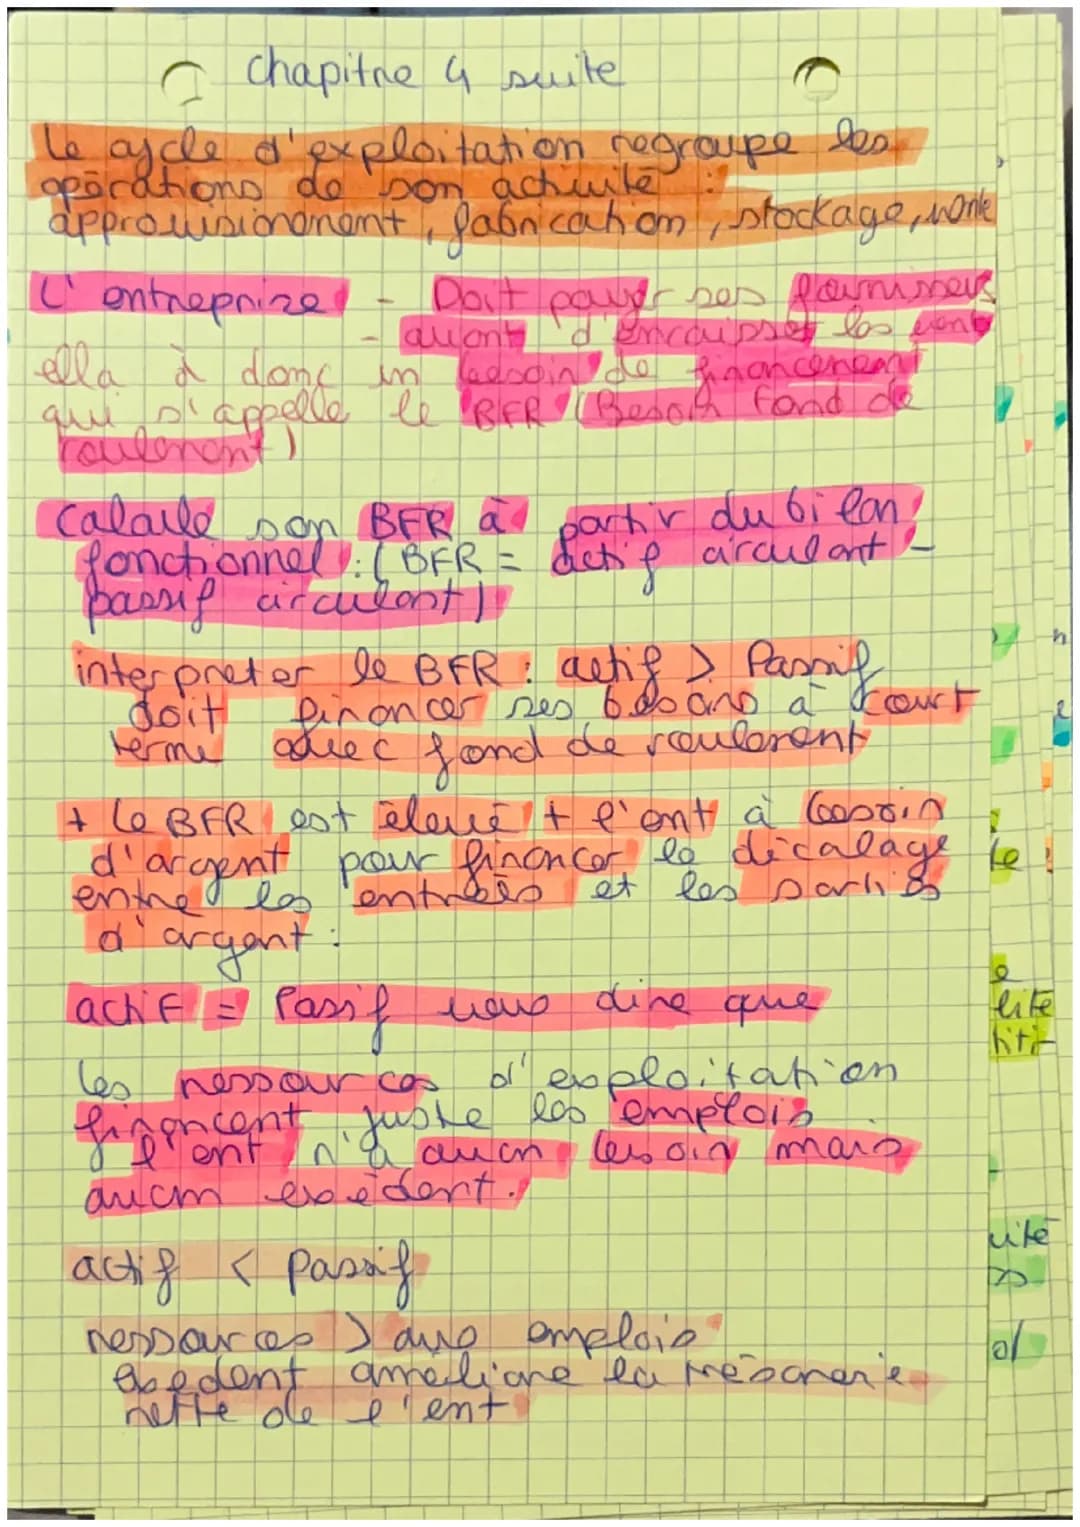 chapitre 4 suite
Le cycle d'exploitation regroupe les
opérations de son activité :
approvisionnement, fabrication, stockage, vente
L'entreprize - Doit payer ses fournisseurs
- avant d'encaisser les vent
ella à donc un besoin de financement
qui s'appelle le BFR (Besoin fond de
roulement)
Calcule son BFR à partir du bilan
fonctionnel : (BFR = actif circulant -
passif circulant)
interpreter le BFR : actif > Passif
doit financer ses besoins à court
terme avec fond de roulement
+ le BFR est élevé + l'ent à besoin
d'argent pour financer le décalage
entre les entrées et les sorties
d'argent :
actif = Passif veus dire que
les ressources d'exploitation
financent juste les emplois
l'ent n'a aucun besoin mais
aucun exédent.
actif < passif
ressources > aux emplois
Exedent améliore la trésorerie
nette de l'ent
n
e
le
e
lité
liti-
uité
s
d